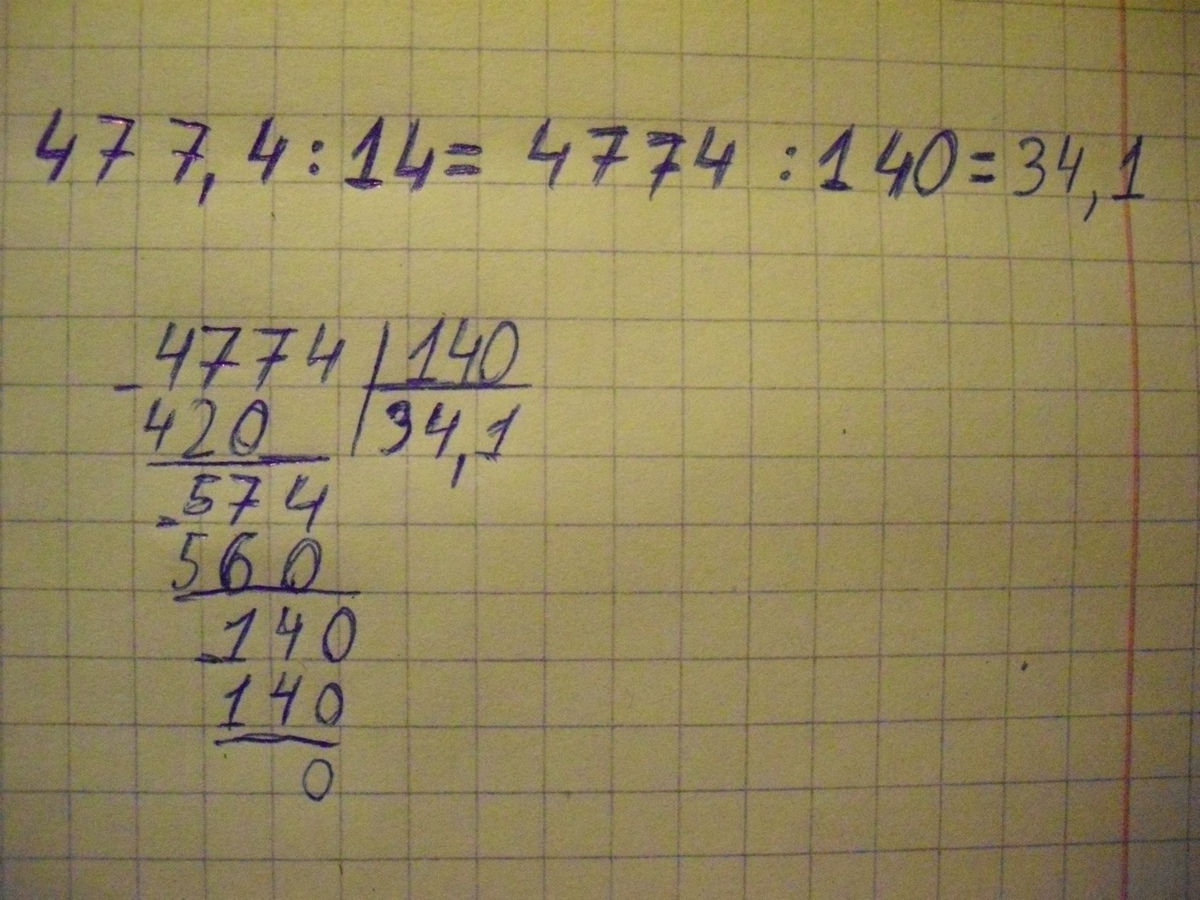 477,4:14= 4774 :140=34,1
-4774 |140
420 |34,1
-574
560
-140
140
0